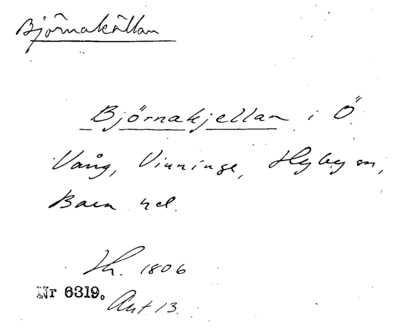 Björnakällan
Björnakjellan i Ö
Vång, Vinninge, Hyby sn,
Bara hd.
Th. 1806
Nr 6319. Akt 13.